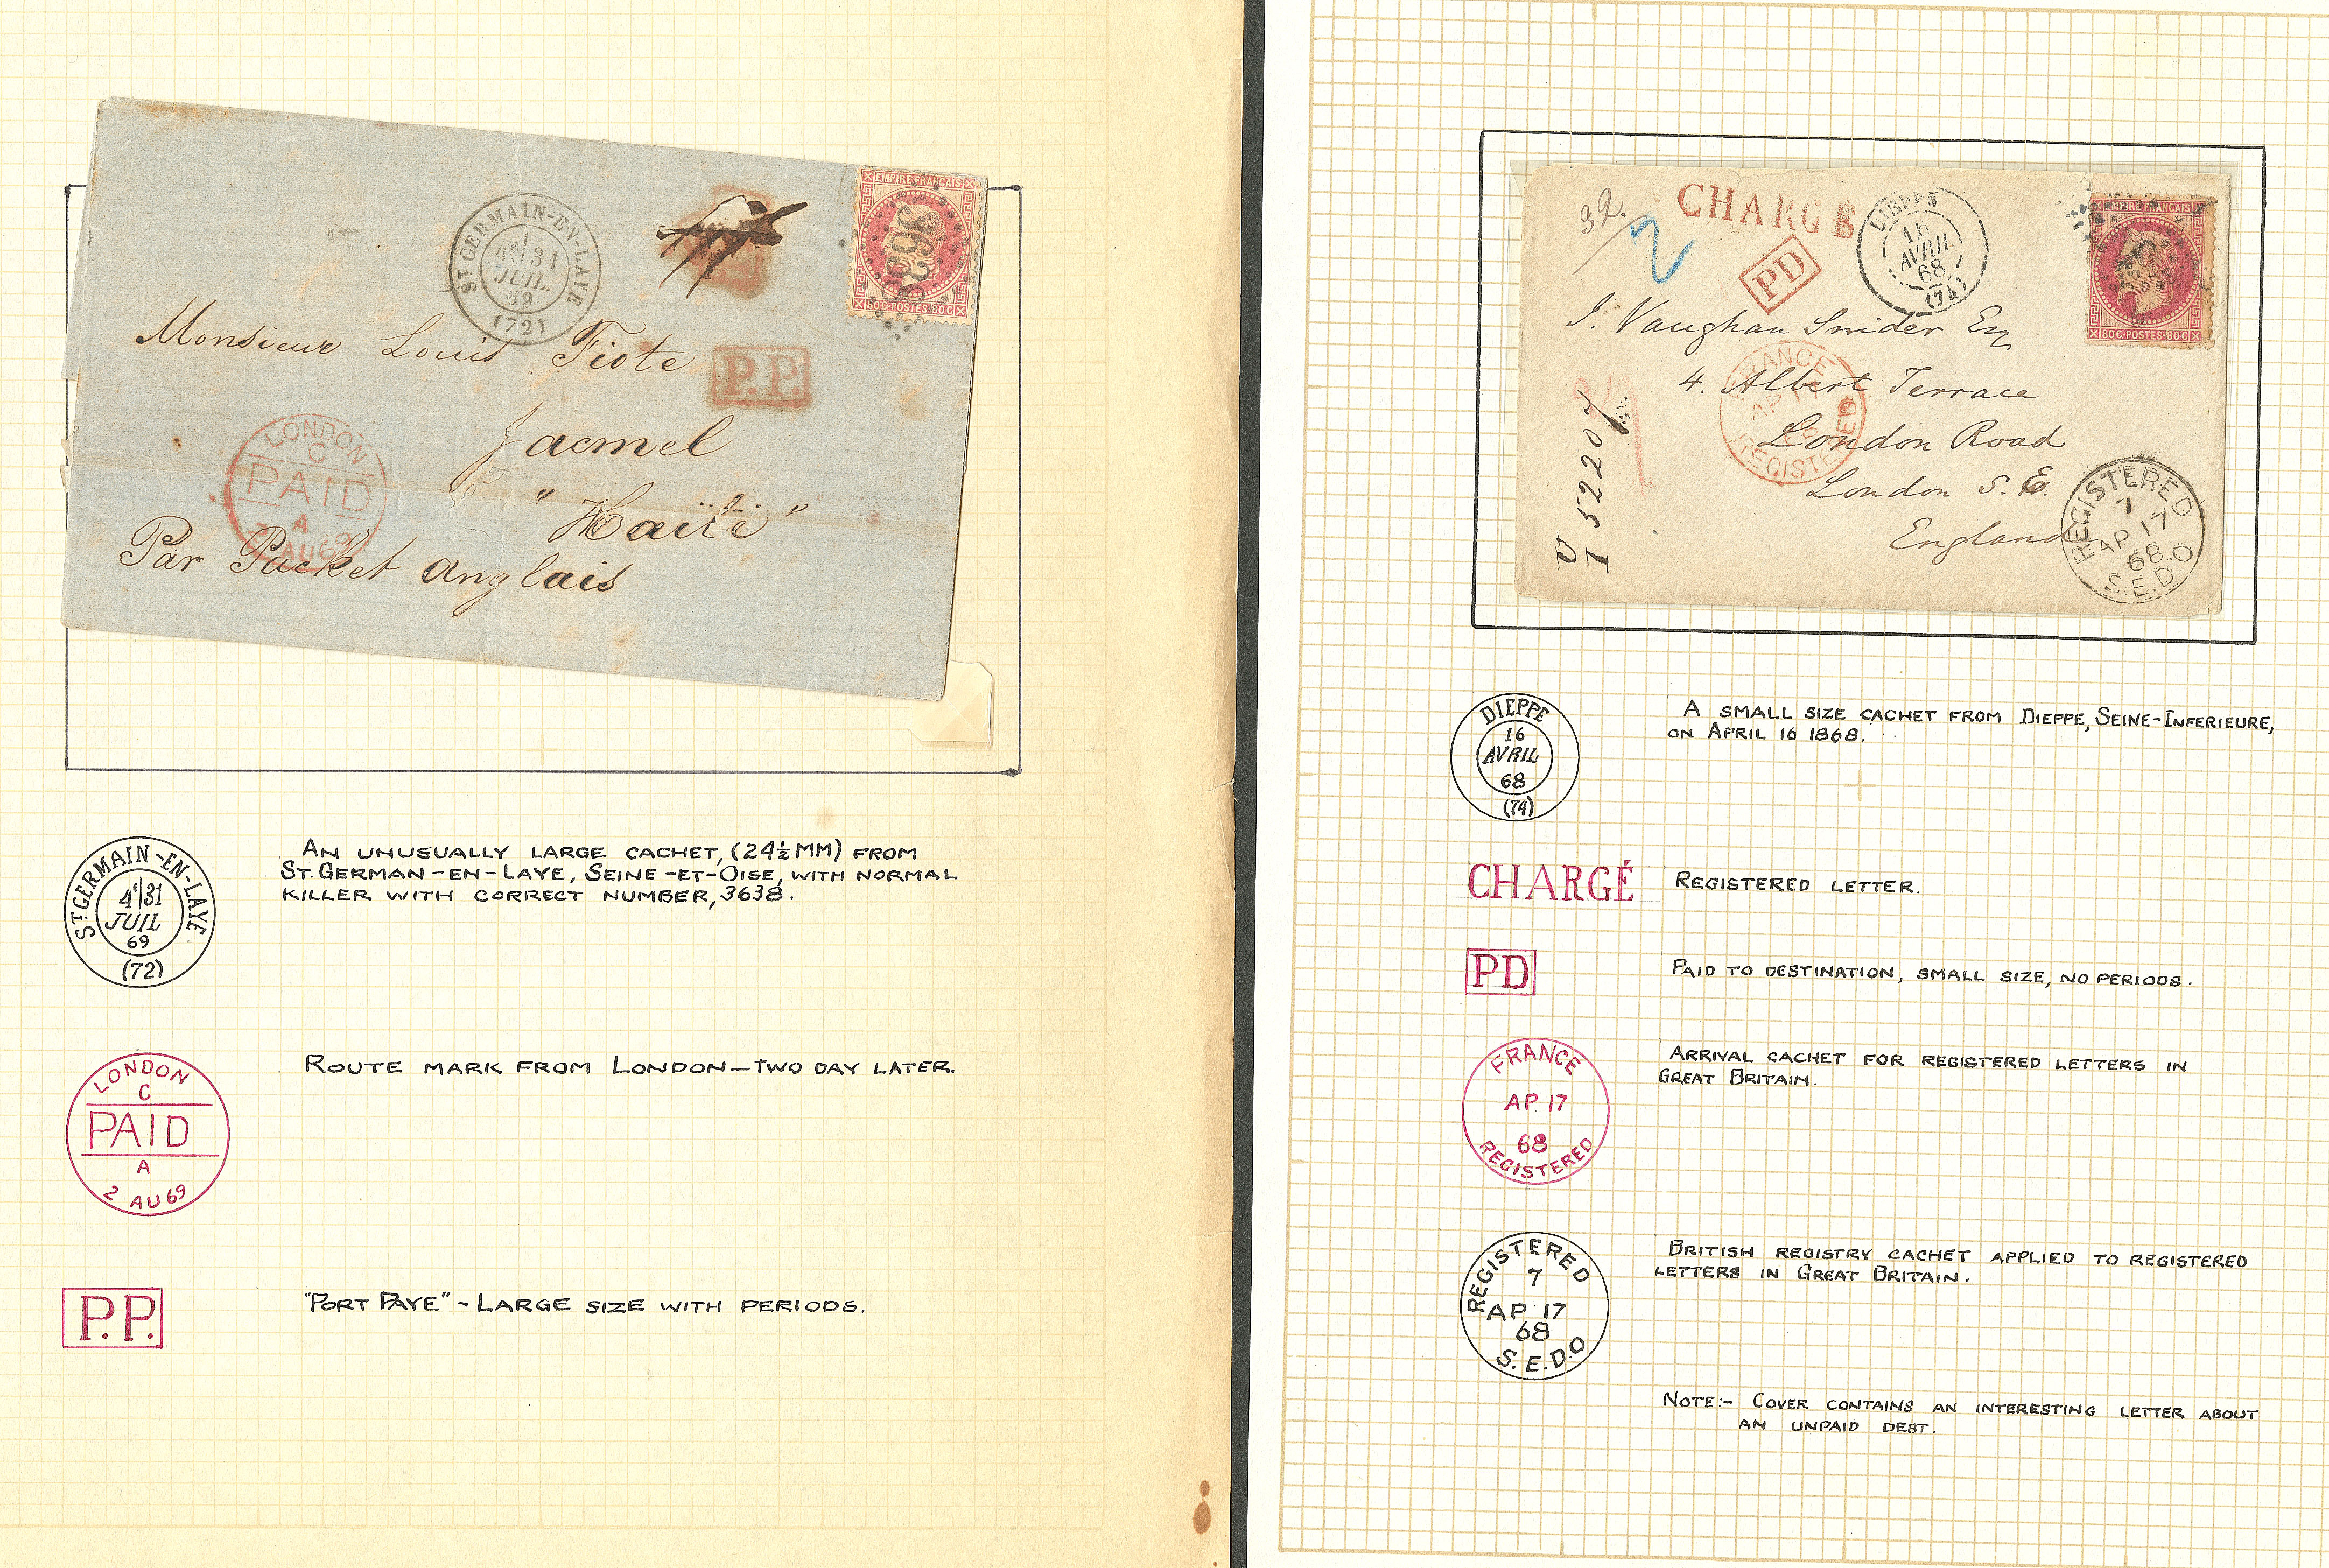 ST GERMAIN-EN-LAYE
4E 31
JUIL.
69
(72)
EMPIRE FRANÇAIS
3638
80C·POSTES·80C
Monsieur Louis Fiote
P.P.
Jacmel
"Haïti"
Par Packet Anglais
LONDON
C
PAID
A
2 AU 69
ST GERMAIN-EN-LAYE
4E 31
JUIL
69
(72)
AN UNUSUALLY LARGE CACHET, (24½ MM) FROM
ST. GERMAN-EN-LAYE, SEINE-ET-OISE, WITH NORMAL
KILLER WITH CORRECT NUMBER, 3638.
LONDON
C
PAID
A
2 AU 69
ROUTE MARK FROM LONDON—TWO DAY LATER.
P.P.
"PORT PAYE" - LARGE SIZE WITH PERIODS.
32.
2
CHARGÉ
PD
DIEPPE
16
AVRIL
68
(74)
EMPIRE FRANÇAIS
80C·POSTES·80C
J. Vaughan Snider Esq
4. Albert Terrace
London Road
London S.E.
England
FRANCE
AP 17
68
REGISTERED
REGISTERED
7
AP 17
68
S.E.D.O
DIEPPE
16
AVRIL
68
(74)
A SMALL SIZE CACHET FROM DIEPPE, SEINE-INFERIEURE,
ON APRIL 16 1868.
CHARGÉ
REGISTERED LETTER.
PD
PAID TO DESTINATION, SMALL SIZE, NO PERIODS.
FRANCE
AP. 17
68
REGISTERED
ARRIVAL CACHET FOR REGISTERED LETTERS IN
GREAT BRITAIN.
REGISTERED
7
AP 17
68
S.E.D.O
BRITISH REGISTRY CACHET APPLIED TO REGISTERED
LETTERS IN GREAT BRITAIN.
NOTE:- COVER CONTAINS AN INTERESTING LETTER ABOUT
AN UNPAID DEBT.